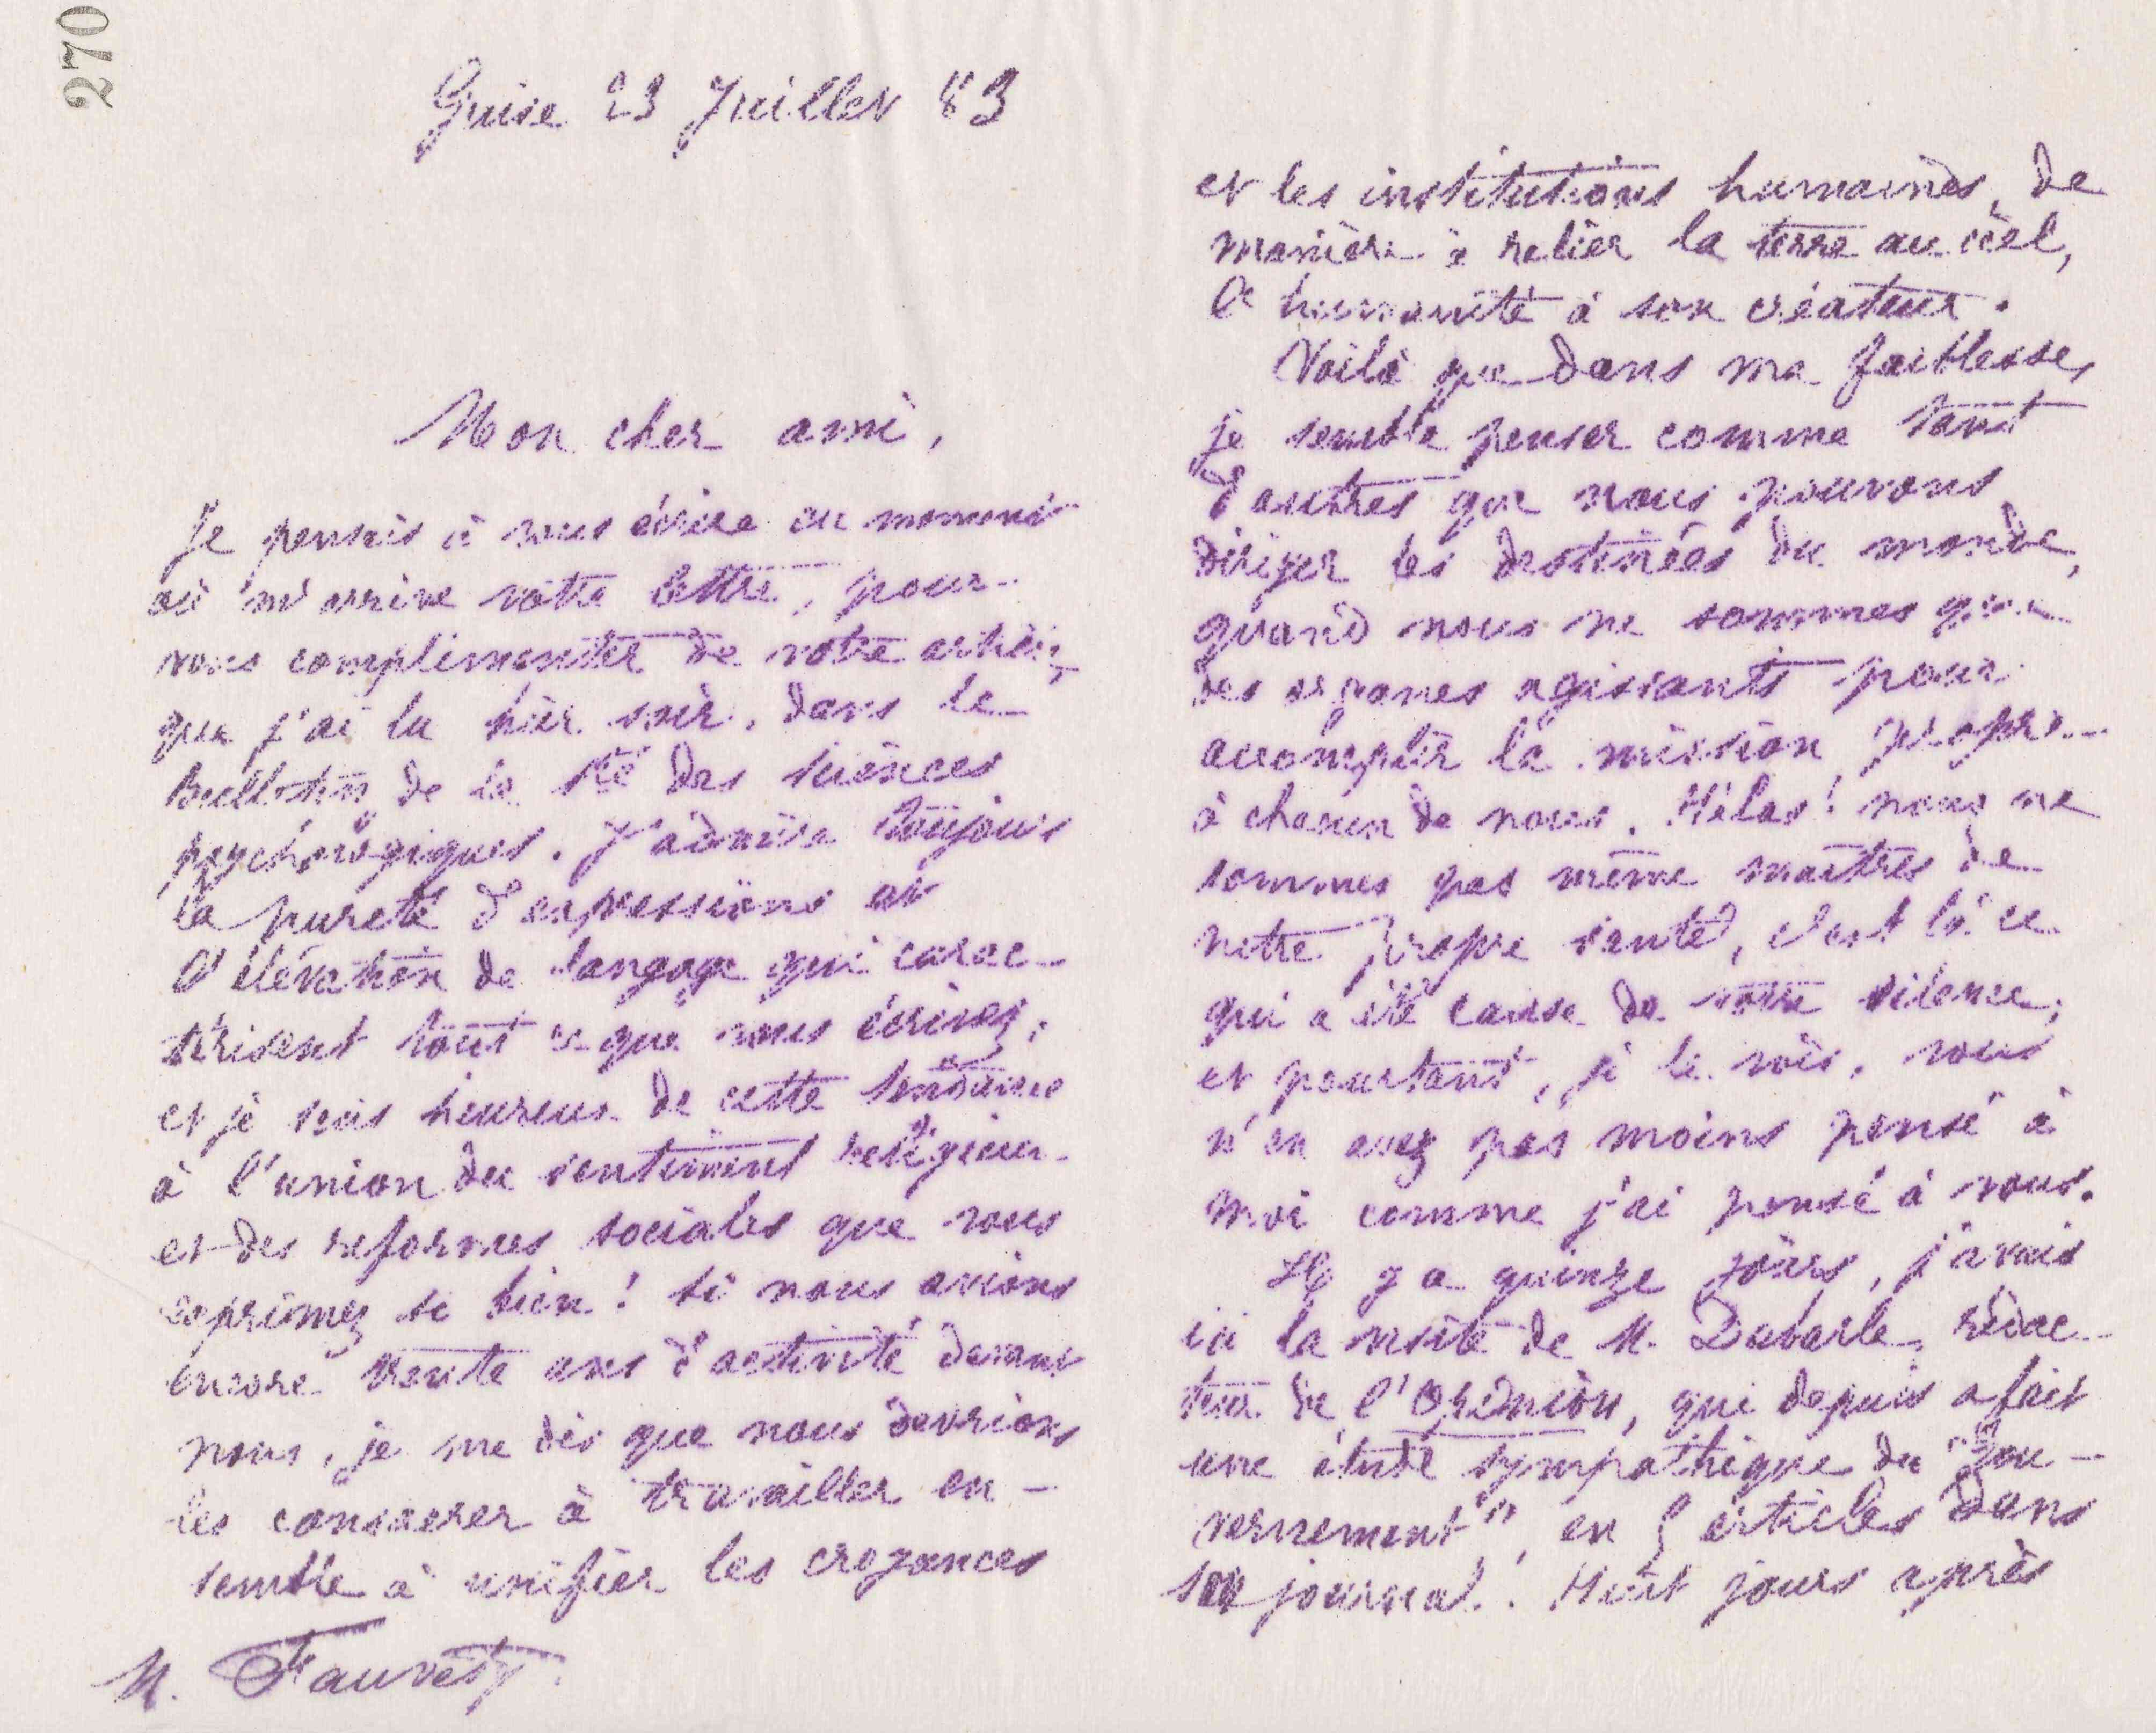 270
Guise 23 Juillet 83
Mon cher ami,
Je pensais à vous écrire au moment
où m'arrive votre lettre, pour
vous complimenter de votre article,
que j'ai lu hier soir, dans le
Bulletin de la Sté des sciences
psychologiques. J'admire toujours
la pureté d'expressions et
l'élévation de langage qui carac-
térisent tout ce que vous écrivez,
et je suis heureux de cette tendance
à l'union du sentiment religieux
et des reformes sociales que vous
exprimez si bien! Si nous avions
encore trente ans d'activité devant
nous, je me dis que nous devrions
les consacrer à travailler en-
semble à unifier les croyances
M. Fauvety
et les institutions humaines, de
manière à relier la terre au ciel,
l'humanité à son créateur.
Voilà que dans ma faiblesse,
je semble penser comme tant
d'autres que nous pouvons
diriger les destinées du monde,
quand nous ne sommes que
des organes agissants pour
accomplir la mission propre
à chacun de nous. Hélas! nous ne
sommes pas même maîtres de
notre propre santé, c'est là ce
qui a été cause de votre silence;
et pourtant, je le vois, vous
n'en avez pas moins pensé à
moi comme j'ai pensé à vous.
Il y a quinze jours, j'avais
ici la visite de M. Dubarle, rédac-
teur de l'Opinion, qui depuis a fait
une étude sympathique du "Gou-
vernement", en 5 articles dans
son journal. Huit jours après